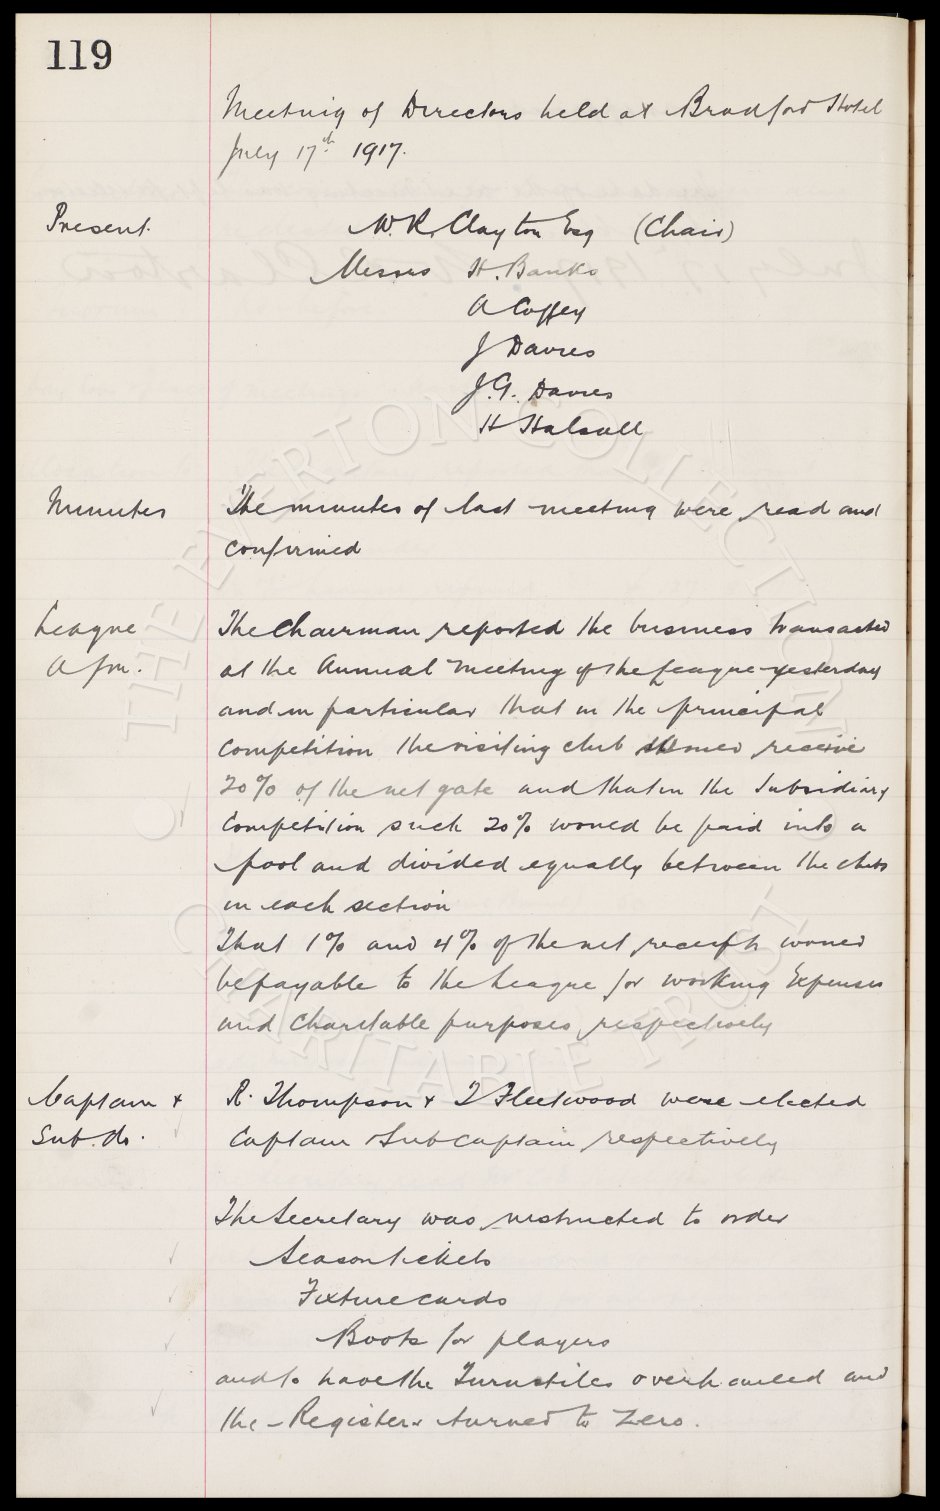 119
Meeting of Directors held at Bradford Hotel
July 17th 1917.
Present. W. R. Clayton Esq (Chair)
Messrs H. Banks
A Coffey
J Davies
J. G. Davies
H Halsall
Minutes The minutes of last meeting were read and
confirmed
League The Chairman reported the business transacted
Assn. at the Annual Meeting of the League yesterday
and in particular that in the principal
Competition the visiting club should receive
20% of the net gate and that in the Subsidiary
Competition such 20% would be paid into a
pool and divided equally between the clubs
in each section
That 1% and 4% of the net receipts would
be payable to the League for working Expenses
and Charitable purposes respectively
Captain & R. Thompson & T Fleetwood were elected
Sub. do. Captain & Subcaptain respectively
The Secretary was instructed to order
Season tickets
Fixture cards
Boots for players
and to have the Turnstiles overhauled and
the Registers turned to Zero.
© THE EVERTON COLLECTION
CHARITABLE TRUST